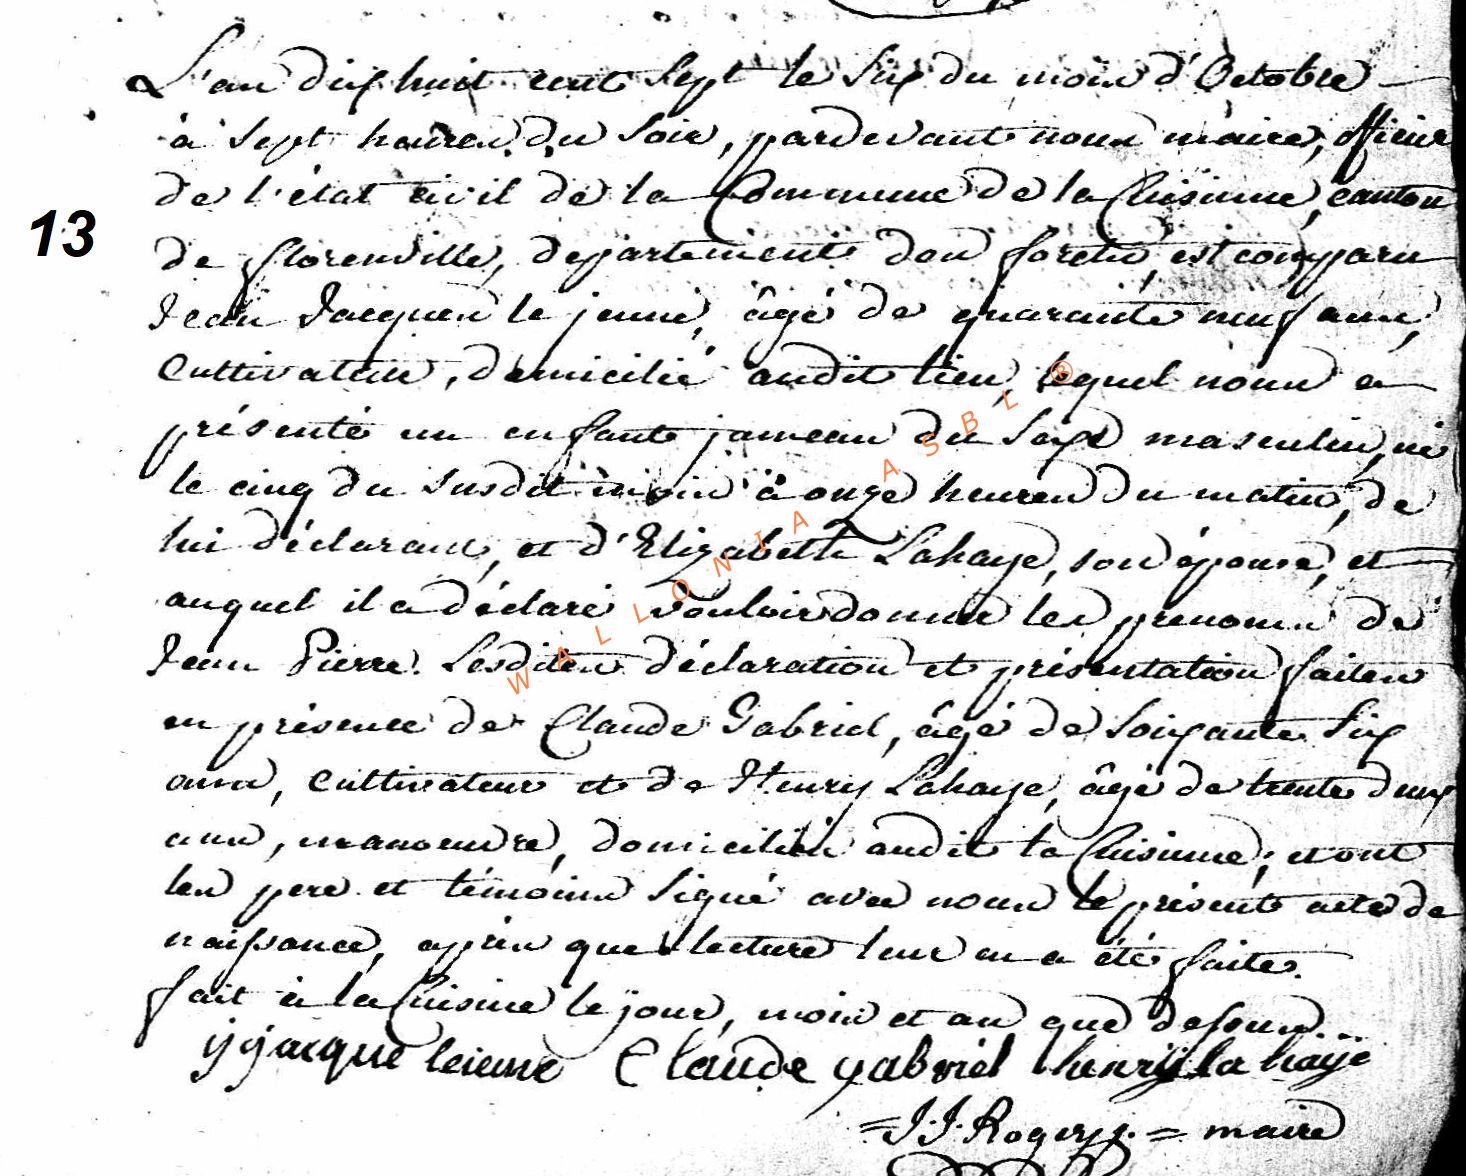 L'an dix huit cent sept le six du mois d'Octobre
à sept heures du soir, pardevant nous maire, officier
de l'état civil de la Commune de la Cuisinne, canton
de florenville, departement des forets, est comparu
Jean Jacques le jeune, âgé de quarante neuf ans,
13
cultivateur, domicilié audit lieu, lequel nous a
présenté un enfant jameau du sexe masculin, né
le cinq du susdit mois à onze heures du matin, de
lui déclarant, et d'Elizabeth Lahaye, son épouse, et
auquel il a déclaré vouloir donner les prenoms de
Jean Pierre. Lesdites déclaration et présentation faites
en présence de Claude Gabriel, âgé de soixante six
ans, cultivateur et de Henry Lahaye, âgé de trente deux
ans, manoeuvre, domiciliés audit la Cuisinne; et ont
les pere et témoins signé avec nous le présent acte de
naissance, après que lecture leur en a été faite.
fait à la Cuisine le jour, mois et an que dessus...
jjjacque leieune Claude gabriel henry la haye
=J.J. Rogery. = maire
WALLONIA ASBL ®